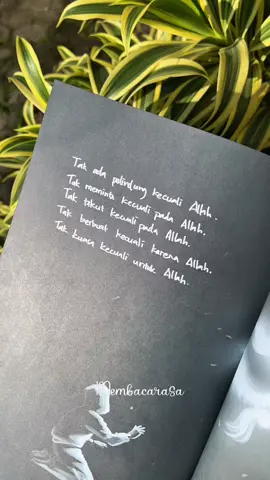 Tak ada pelindung kecuali Allah.
Tak meminta kecuali pada Allah.
Tak takut kecuali pada Allah.
Tak berbuat kecuali karena Allah.
Tak kuasa kecuali untuk Allah.
Membacarasa